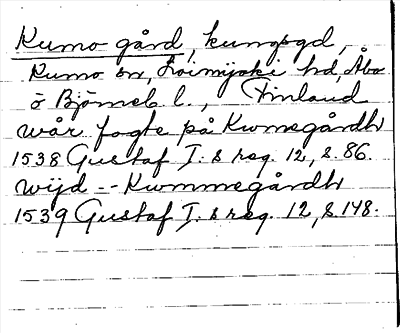 Kumo gård, kungsgd,
Kumo sn, Loimijoki hd, Åbo
o Björneb l., Finland
wår fogte på Kwmegårdh
1538 Gustaf I:s reg. 12, s. 86.
wijd -- Kwmmegårdh
1539 Gustaf I:s reg. 12, s. 148.